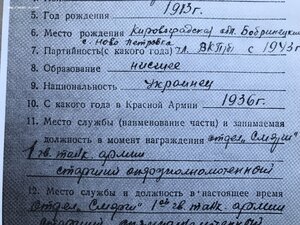 5. Год рождения 1913г.
6. Место рождения Кировоградская обл. Бобринецкий
с. Ново Петровка
7. Партийность (с какого года) чл. ВКП(б) с 1943г
8. Образование низшее
9. Национальность Украинец
10. С какого года в Красной Армии 1936г.
11. Место службы (наименование части) и занимаемая
должность в момент награждения отдел „Смерш"
1 гв. танк. армии
старший оперуполномоченный
12. Место службы и должность в настоящее время
отдел „Смерш" 1ой гв. танк. армии
старший оперуполномоченный